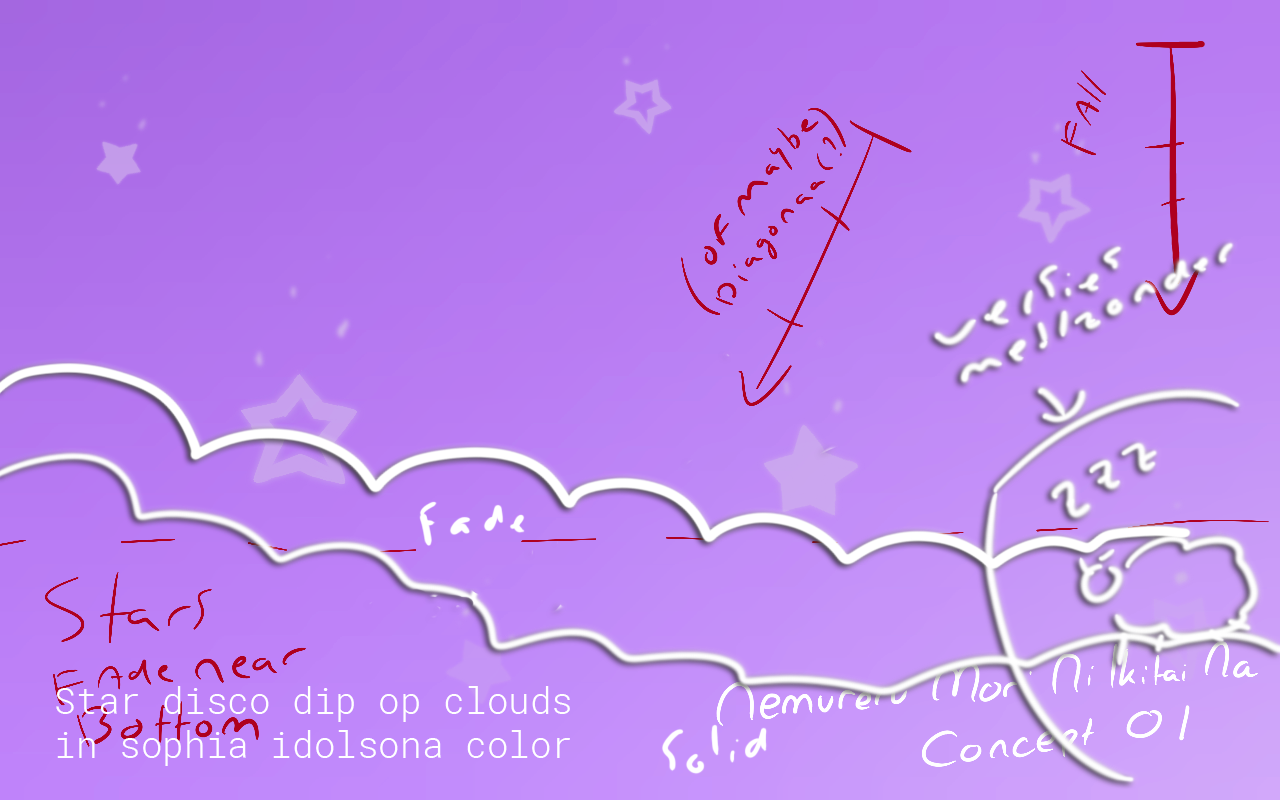 FAll
(or maybe
Diagonaa(?)
versies
mes/zonder
zzz
Fade
Stars
Fade near
Bottom
Star disco dip op clouds
in sophia idolsona color
Nemureru Mori Ni Ikitai Na
Concept 01
Solid